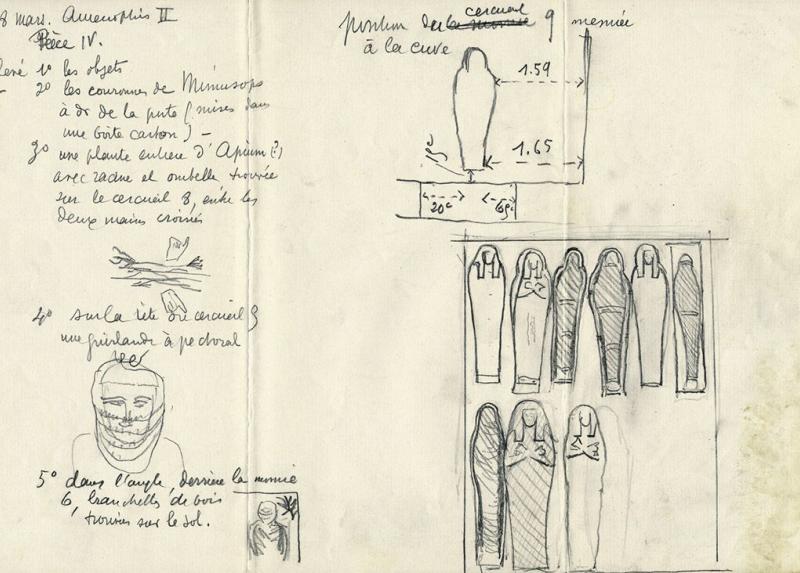 8 mars. Amenophis II
Pièce IV.
levé 1º les objets
2º les couronnes de Mimusops
à dr de la porte (mises dans
une boîte carton) –
3º une plante entière d'Apium (?)
avec racine et ombelle trouvée
sur le cercueil 8, entre les
deux mains croisées
4º sur la tête du cercueil 9
une guirlande à pectoral
5º dans l'angle, derrière la momie
6, branchelles de bois
trouvées sur le sol.
position de la momie cercueil 9 mesurée
à la cuve
1.59
1.65
15c
20c
69c